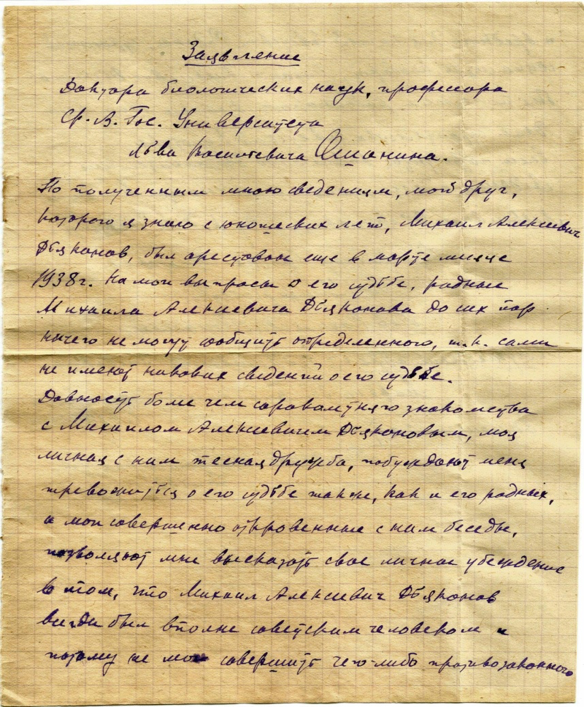 Заявление
Доктора биологических наук, профессора
Ср.-А. Гос. Университета
Льва Васильевича Ошанина.
По полученным мною сведениям, мой друг,
которого я знаю с юношеских лет, Михаил Алексеевич
Дьяконов, был арестован еще в марте месяце
1938 г. На мои вопросы о его судьбе, родные
Михаила Алексеевича Дьяконова до сих пор
ничего не могут сообщить определенного, т.к. сами
не имеют никаких сведений о его судьбе.
Давность более чем сорокалетнего знакомства
с Михаилом Алексеевичем Дьяконовым, моя
личная с ним тесная дружба, побуждают меня
тревожиться о его судьбе также, как и его родных,
а мои совершенно откровенные с ним беседы,
позволяют мне высказать свое личное убеждение
в том, что Михаил Алексеевич Дьяконов
всегда был вполне советским человеком и
потому не мог совершить чего-либо противозаконного